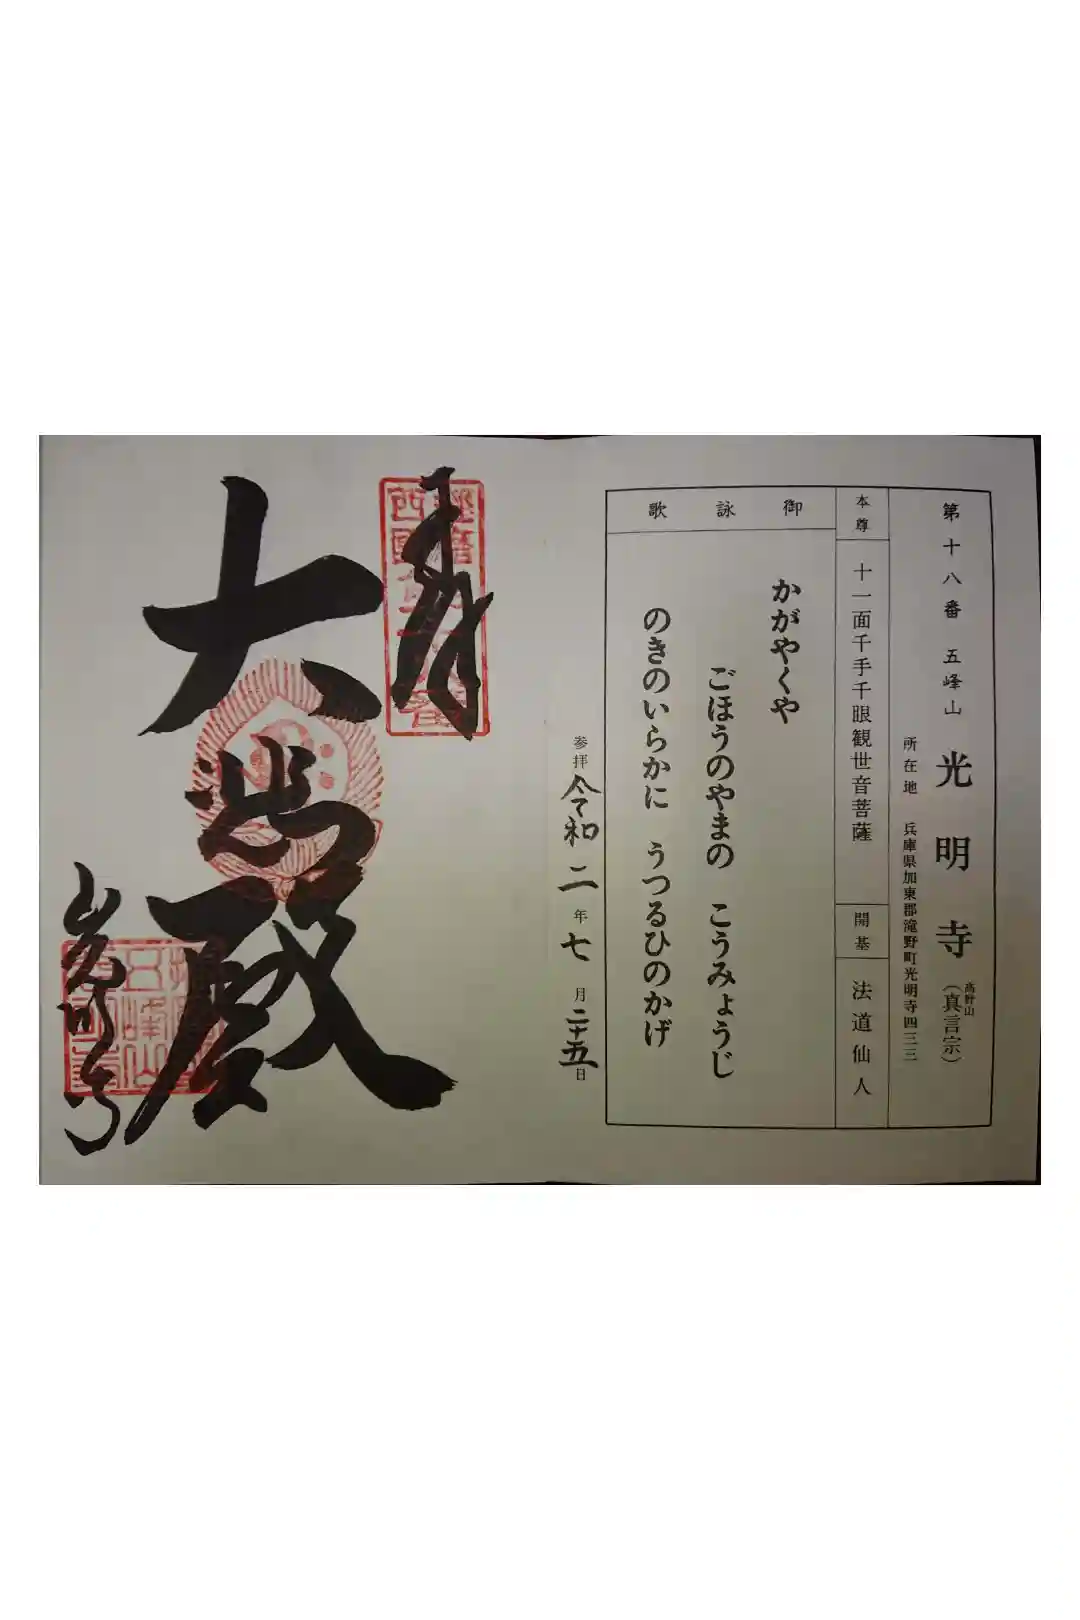 第十八番 五峰山 光明寺（高野山真言宗）
所在地 兵庫県加東郡滝野町光明寺四三三
本尊 十一面千手千眼観世音菩薩
開基 法道仙人
御詠歌
かがやくや
ごほうのやまの こうみょうじ
のきのいらかに うつるひのかげ
参拝 令和二年七月二十五日
奉
播磨
西国
大悲殿
光明寺